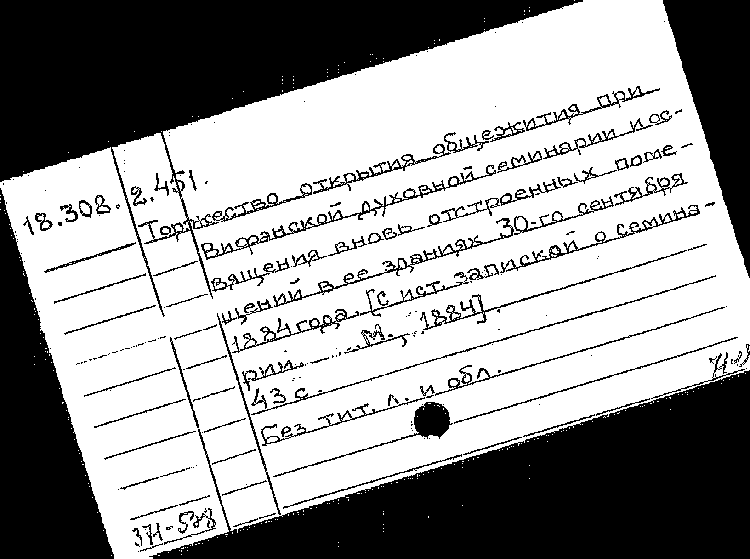 18.308.2.451.
Торжество открытия общежития при
Вифанской духовной семинарии и ос-
вящения вновь отстроенных поме-
щений в ее зданиях 30-го сентября
1884 года. [С ист. запиской о семина-
рии. М., 1884].
43 с.
Без тит. л. и обл.
371-578